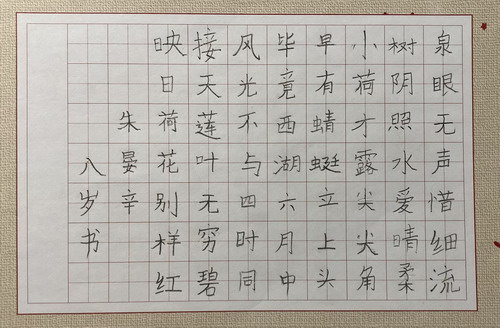 泉眼无声惜细流
树阴照水爱晴柔
小荷才露尖尖角
早有蜻蜓立上头
毕竟西湖六月中
风光不与四时同
接天莲叶无穷碧
映日荷花别样红
朱晏辛
八岁书